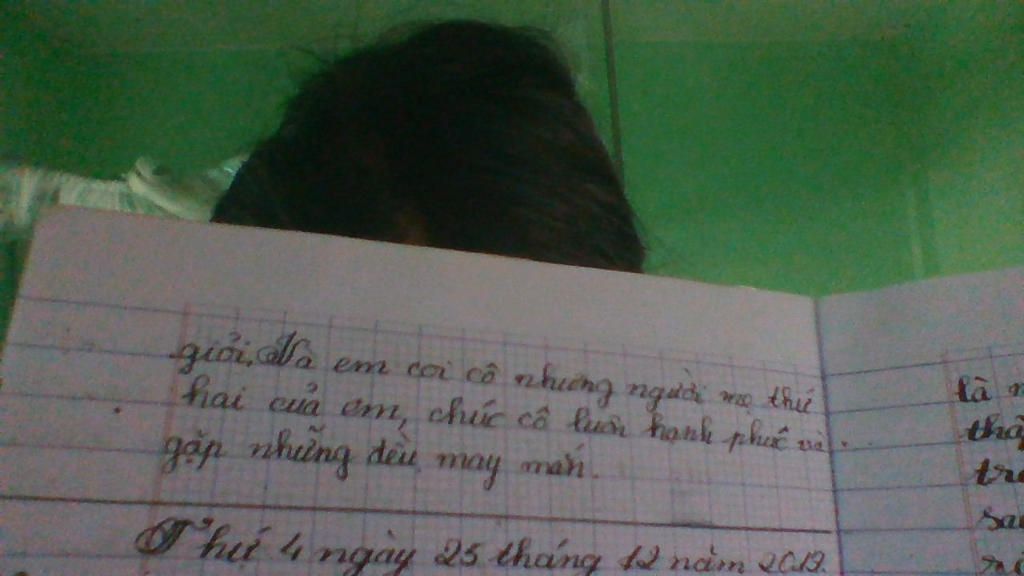 giỏi. Và em coi cô nhưng người mẹ thứ
hai của em, chúc cô luôn hạnh phúc và
gặp những đều may mắn.
Thứ 4 ngày 25 tháng 12 năm 2019.
là